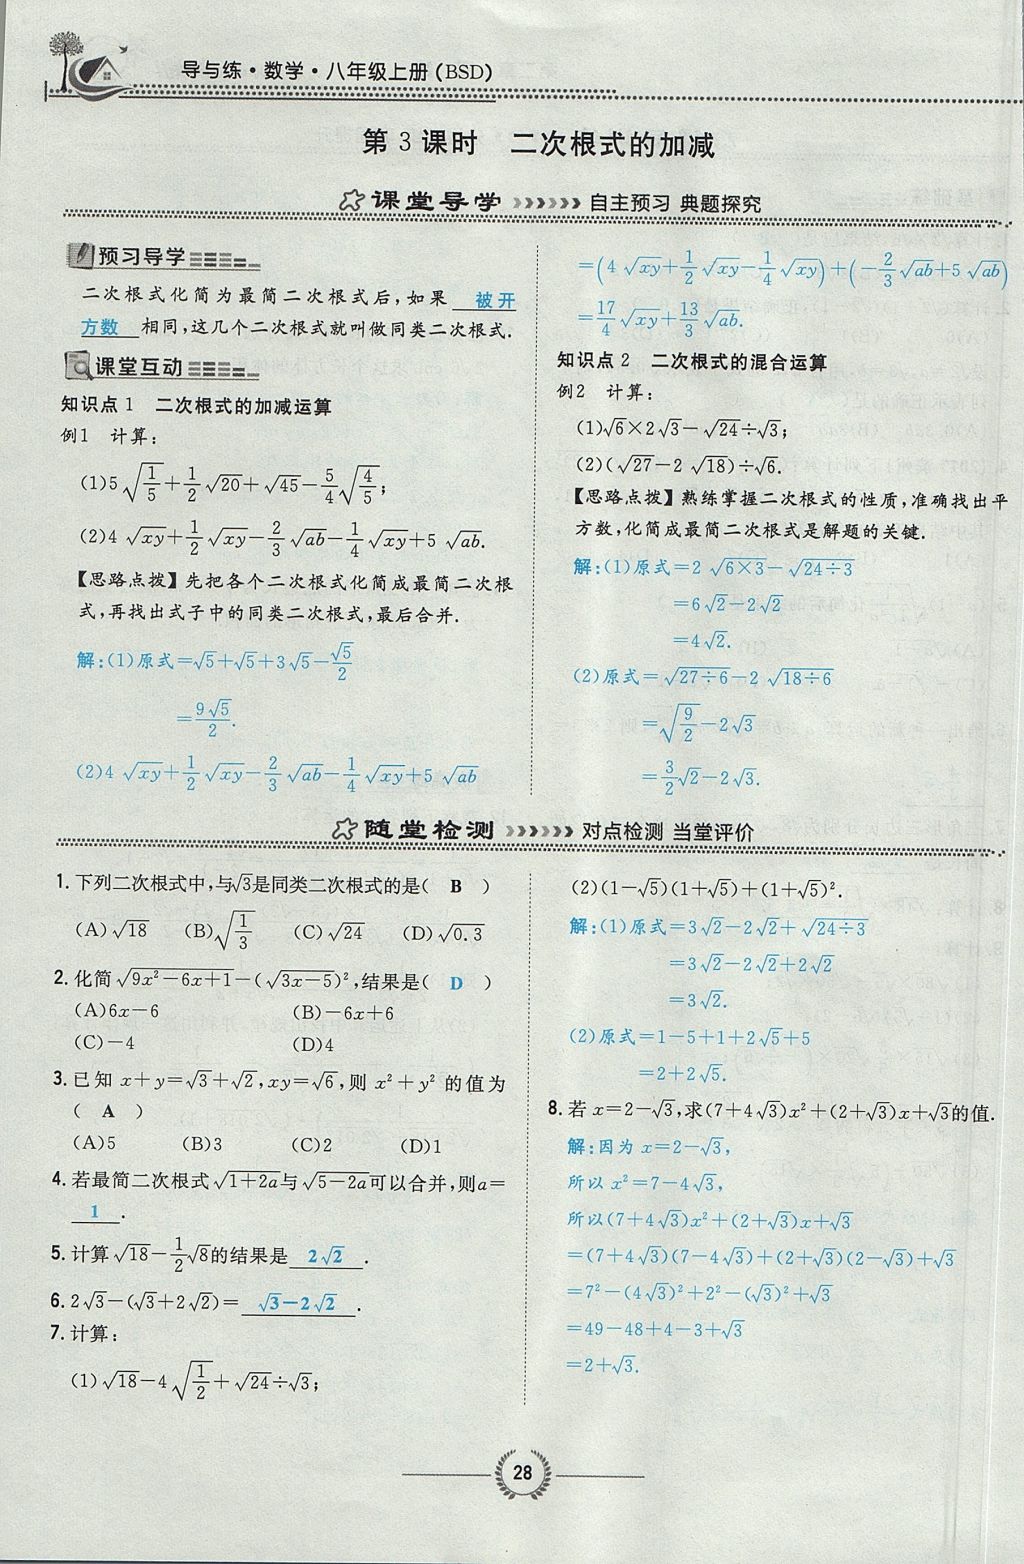 导与练·数学·八年级上册(BSD)
第3课时　二次根式的加减
课堂导学 自主预习 典题探究
预习导学
二次根式化简为最简二次根式后,如果 被开
方数 相同,这几个二次根式就叫做同类二次根式.
课堂互动
知识点1　二次根式的加减运算
例1　计算:
(1)5√(1/5)+1/2√20+√45−5/4√(4/5);
(2)4√xy+1/2√xy−2/3√ab−1/4√xy+5√ab.
【思路点拨】先把各个二次根式化简成最简二次根
式,再找出式子中的同类二次根式,最后合并.
解:(1)原式=√5+√5+3√5−√5/2
=9√5/2.
(2)4√xy+1/2√xy−2/3√ab−1/4√xy+5√ab
=(4√xy+1/2√xy−1/4√xy)+(−2/3√ab+5√ab)
=17/4√xy+13/3√ab.
知识点2　二次根式的混合运算
例2　计算:
(1)√6×2√3−√24÷√3;
(2)(√27−2√18)÷√6.
【思路点拨】熟练掌握二次根式的性质,准确找出平
方数,化简成最简二次根式是解题的关键.
解:(1)原式=2√(6×3)−√(24÷3)
=6√2−2√2
=4√2.
(2)原式=√(27÷6)−2√(18÷6)
=√(9/2)−2√3
=3/2√2−2√3.
随堂检测 对点检测 当堂评价
1.下列二次根式中,与√3是同类二次根式的是( B )
(A)√18　(B)√(1/3)　(C)√24　(D)√0.3
2.化简√(9x²−6x+1)−(√(3x−5))²,结果是( D )
(A)6x−6　(B)−6x+6
(C)−4　(D)4
3.已知 x+y=√3+√2,xy=√6,则 x²+y² 的值为
( A )
(A)5　(B)3　(C)2　(D)1
4.若最简二次根式√(1+2a)与√(5−2a)可以合并,则a=
1 .
5.计算√18−1/2√8的结果是 2√2 .
6.2√3−(√3+2√2)= √3−2√2 .
7.计算:
(1)√18−4√(1/2)+√24÷√3;
(2)(1−√5)(1+√5)+(1+√5)².
解:(1)原式=3√2−2√2+√(24÷3)
=3√2−2√2+2√2
=3√2.
(2)原式=1−5+1+2√5+5
=2+2√5.
8.若 x=2−√3,求(7+4√3)x²+(2+√3)x+√3的值.
解:因为 x=2−√3,
所以 x²=7−4√3,
所以(7+4√3)x²+(2+√3)x+√3
=(7+4√3)(7−4√3)+(2+√3)(2−√3)+√3
=7²−(4√3)²+2²−(√3)²+√3
=49−48+4−3+√3
=2+√3.
28